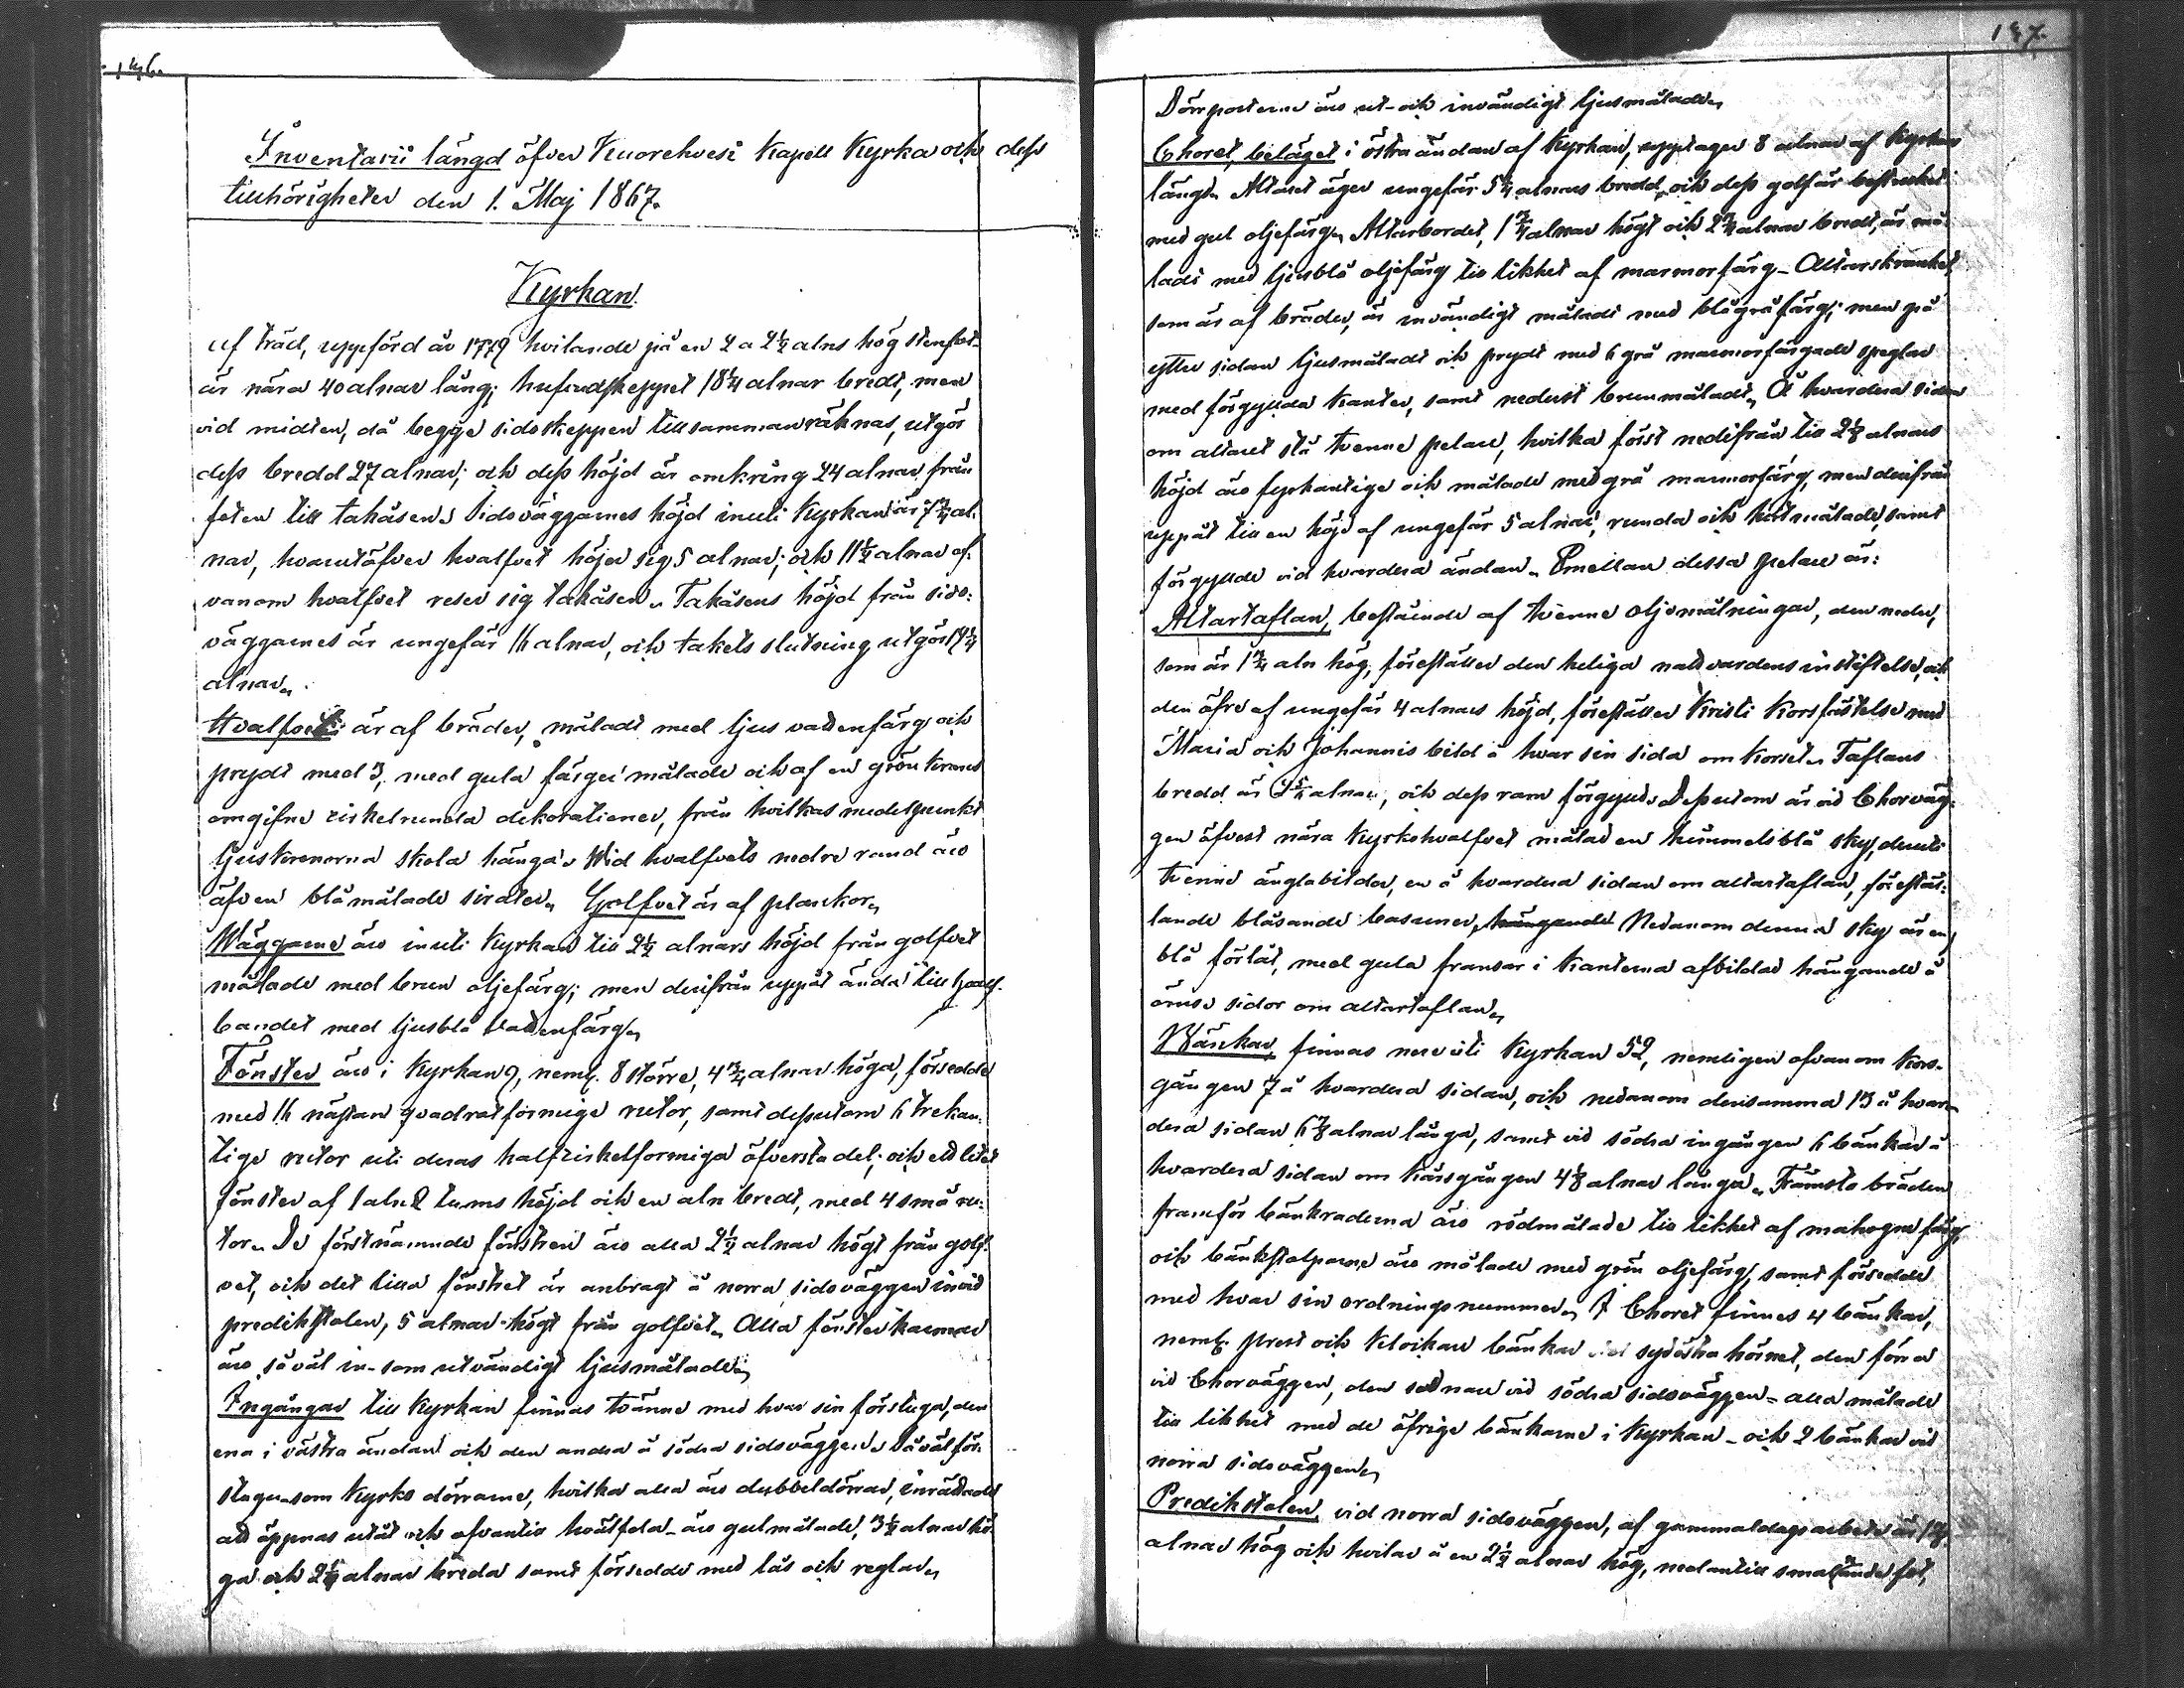 146.
Inventarii längd öfver Kuorehvesi Kapell Kyrka och dess
tillhörigheter den 1. Maj 1867.
Kyrkan
af träd, uppförd år 1779 hvilande på en 2 a 2½ alns hög stenfot
är nära 40 alnar lång; hufvudskeppet 18¼ alnar bredt, men
vid midten, då begge sidoskeppen tillsamman räknas, utgör
dess bredd 27 alnar; och dess höjd är omkring 24 alnar från
foten till takåsen. Sidoväggarnes höjd inuti Kyrkan är 7¾ al-
nar, hvarutöfver hvalfvet höjer sig 5 alnar; och 11½ alnar of-
vanom hvalfvet reser sig takåsen. Takåsens höjd från sido-
väggarnes är ungefär 16 alnar, och takets slutning utgör
alnar.
Hvalfvet är af bräder, måladt med ljus vattenfärg och
prydt med 3, med gula färger målade och af en grön krans
omgifne cirkelrunda dekorationer, från hvilkas medelpunkt
ljuskronorna skola hänga. Wid hvalfvets nedre rand äro
äfven blåmålade sirater. Golfvet är af plankor.
Wäggarne äro inuti Kyrkan till 2¼ alnars höjd från golfvet
målade med brun oljefärg; men derifrån uppåt ända till hvalf-
bandet med ljusblå vattenfärg.
Fönster äro i Kyrkan 9, neml. 8 större, 4¾ alnar höga, försedde
med 16 nästan quadratformige rutor, samt dessutom 6 trekan-
tige rutor uti deras halfcirkelformiga öfversta del; och ett litet
fönster af 1 aln 2 tums höjd och en aln bredt, med 4 små ru-
tor. De förstnämnde fönstren äro alla 2½ alnar högt från golf-
vet, och det lilla fönstret är anbragt å norra sidoväggen invid
predikstolen, 5 alnar högt från golfvet. Alla fönsterkarmar
äro såväl in- som utvändigt ljusmålade.
Ingångar till Kyrkan finnas tvänne med hvar sin förstuga, den
ena i västra ändan och den andra å södra sidoväggen. Såväl för-
stugu- som Kyrko dörrarne, hvilka alla äro dubbeldörrar, inrättade
att öppnas utåt och ofvantill hvälfda äro gulmålade, 3½ alnar hö-
ga och 2¼ alnar breda samt försedde med lås och reglar.
147.
Dörrposterne äro ut- och invändigt ljusmålade.
Choret, beläget i östra ändan af Kyrkan, upptager 8 alnar af Kyrkans
längd. Altaret äger ungefär 5¼ alnars bredd, och dess golf är bestruket
med gul oljefärg. Altarbordet, 1¾ alnar högt och 2¾ alnar bredt, är må-
ladt med ljusblå oljefärg till likhet af marmorfärg. Altarskranket,
som är af bräder, är invändigt måladt med blågråfärg; men på
yttre sidan ljusmåladt och prydt med 6 grå marmorfärgade speglar
med förgyllda kanter, samt nederst brunmåladt. Å hvardera sidan
om altaret stå tvenne pelare, hvilka först nedifrån till 2⅛ alnars
höjd äro fyrkantige och målade med grå marmorfärg, men derifrån
uppåt till en höjd af ungefär 5 alnar, runda och hvitmålade, samt
förgyllde vid hvardera ändan. Emellan dessa pelare är:
Altartaflan, bestående af tvenne oljemålningar, den nedre,
som är 1¾ aln hög, föreställer den heliga nattvardens instiftelse, och
den öfre af ungefär 4 alnars höjd, föreställer Kristi Korsfästelse med
Maria och Johannis bild å hvar sin sida om korset. Taflans
bredd är alnar, och dess ram förgylld. Dessutom är vid Chorväg-
gen öfverst nära Kyrkohvalfvet målad en himmelsblå sky, deruti
tvenne änglabilder, en å hvardera sidan om altartaflan, förestäl-
lande blåsande basuner, hängande Nedanom denna sky är en
blå förlåt, med gula fransar i kanterna afbildad hängande å
ömse sidor om altartaflan.
Bänkar, finnas nere uti Kyrkan 52, nemligen ofvanom Kors-
gången 7 å hvardera sidan, och nedanom densamma 13 å hvar-
dera sidan 6⅞ alnar långa, samt vid södra ingången 6 bänkar å
hvardera sidan om korsgången 4⅛ alnar långa. Främsta bräden
framför bänkraderna äro rödmålade till likhet af mahogne färg,
och bänkstolparne äro målade med grön oljefärg, samt försedde
med hvar sin ordningsnummer. I Choret finnes 4 bänkar,
neml. prest och klockare bänkar sydöstra hörnet, den förra
vid Chorväggen, den sednare vid södra sidoväggen - alla målade
till likhet med de öfrige bänkarne i Kyrkan - och 2 bänkar vid
norra sidoväggen.
Predikstolen, vid norra sidoväggen, af gammaldags arbete är
alnar hög och hvilar å en 2½ alnar hög, nedantill smalnande fot,